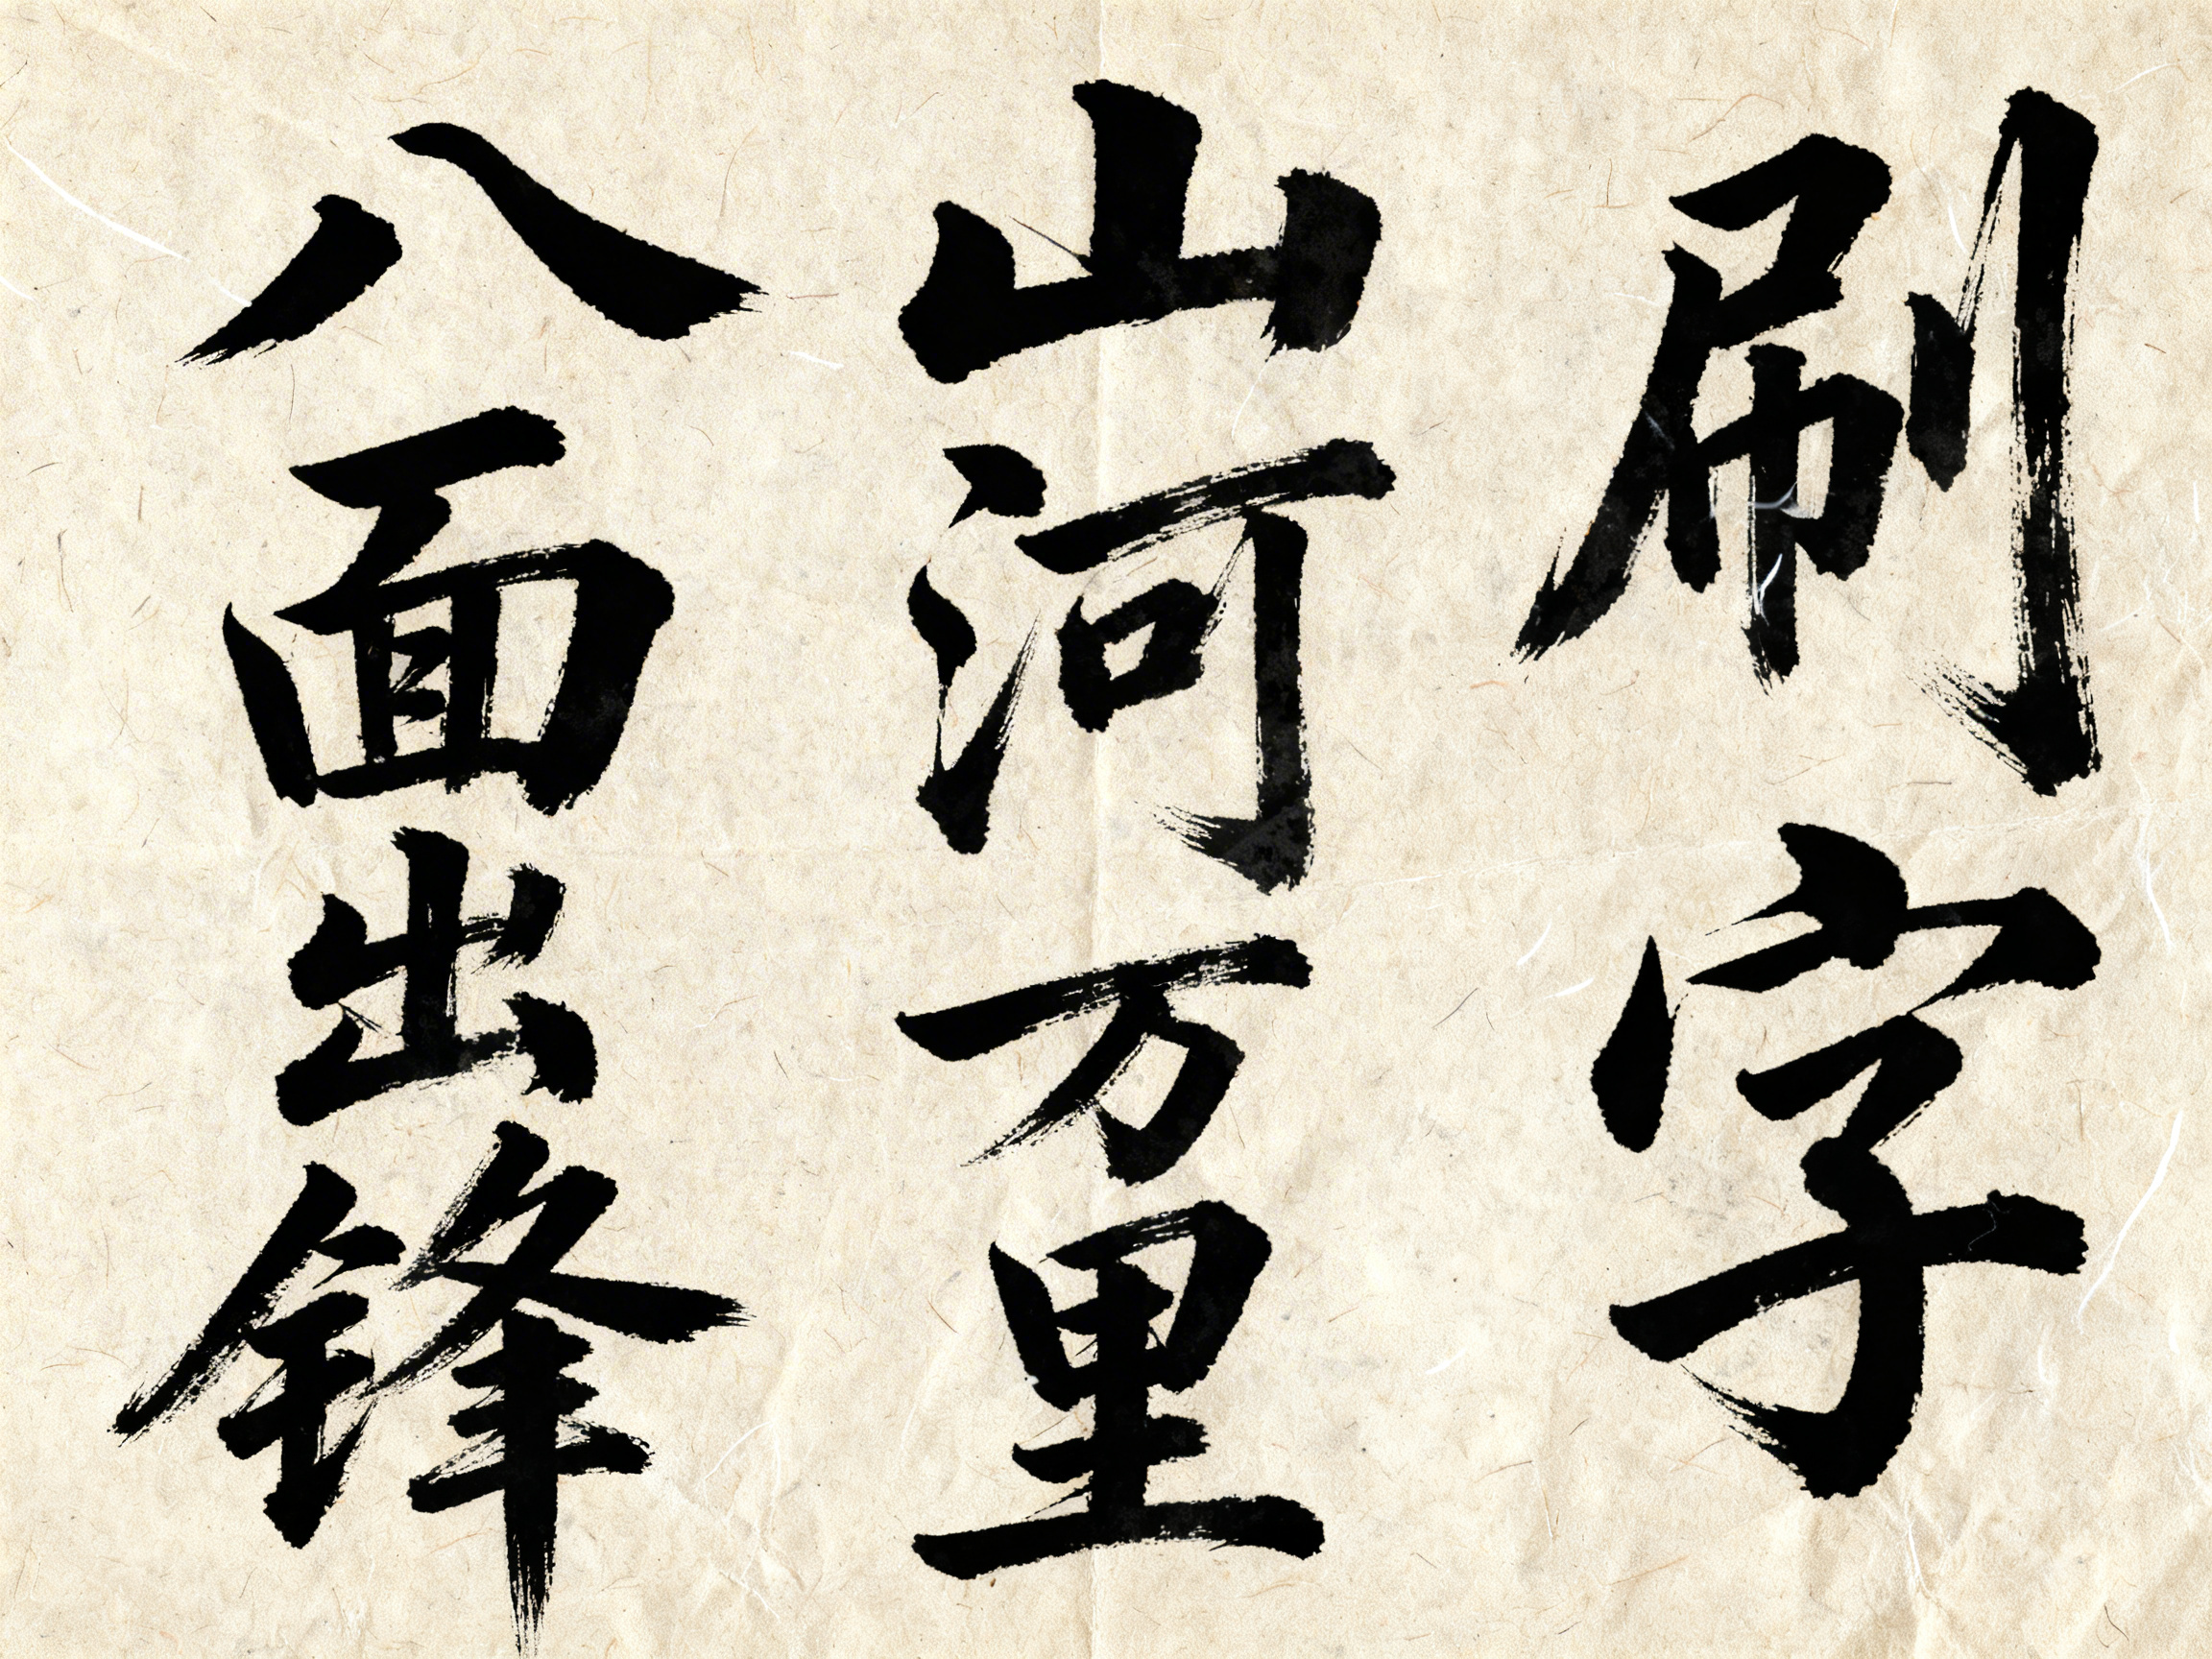 刷字
山河万里
八面出锋